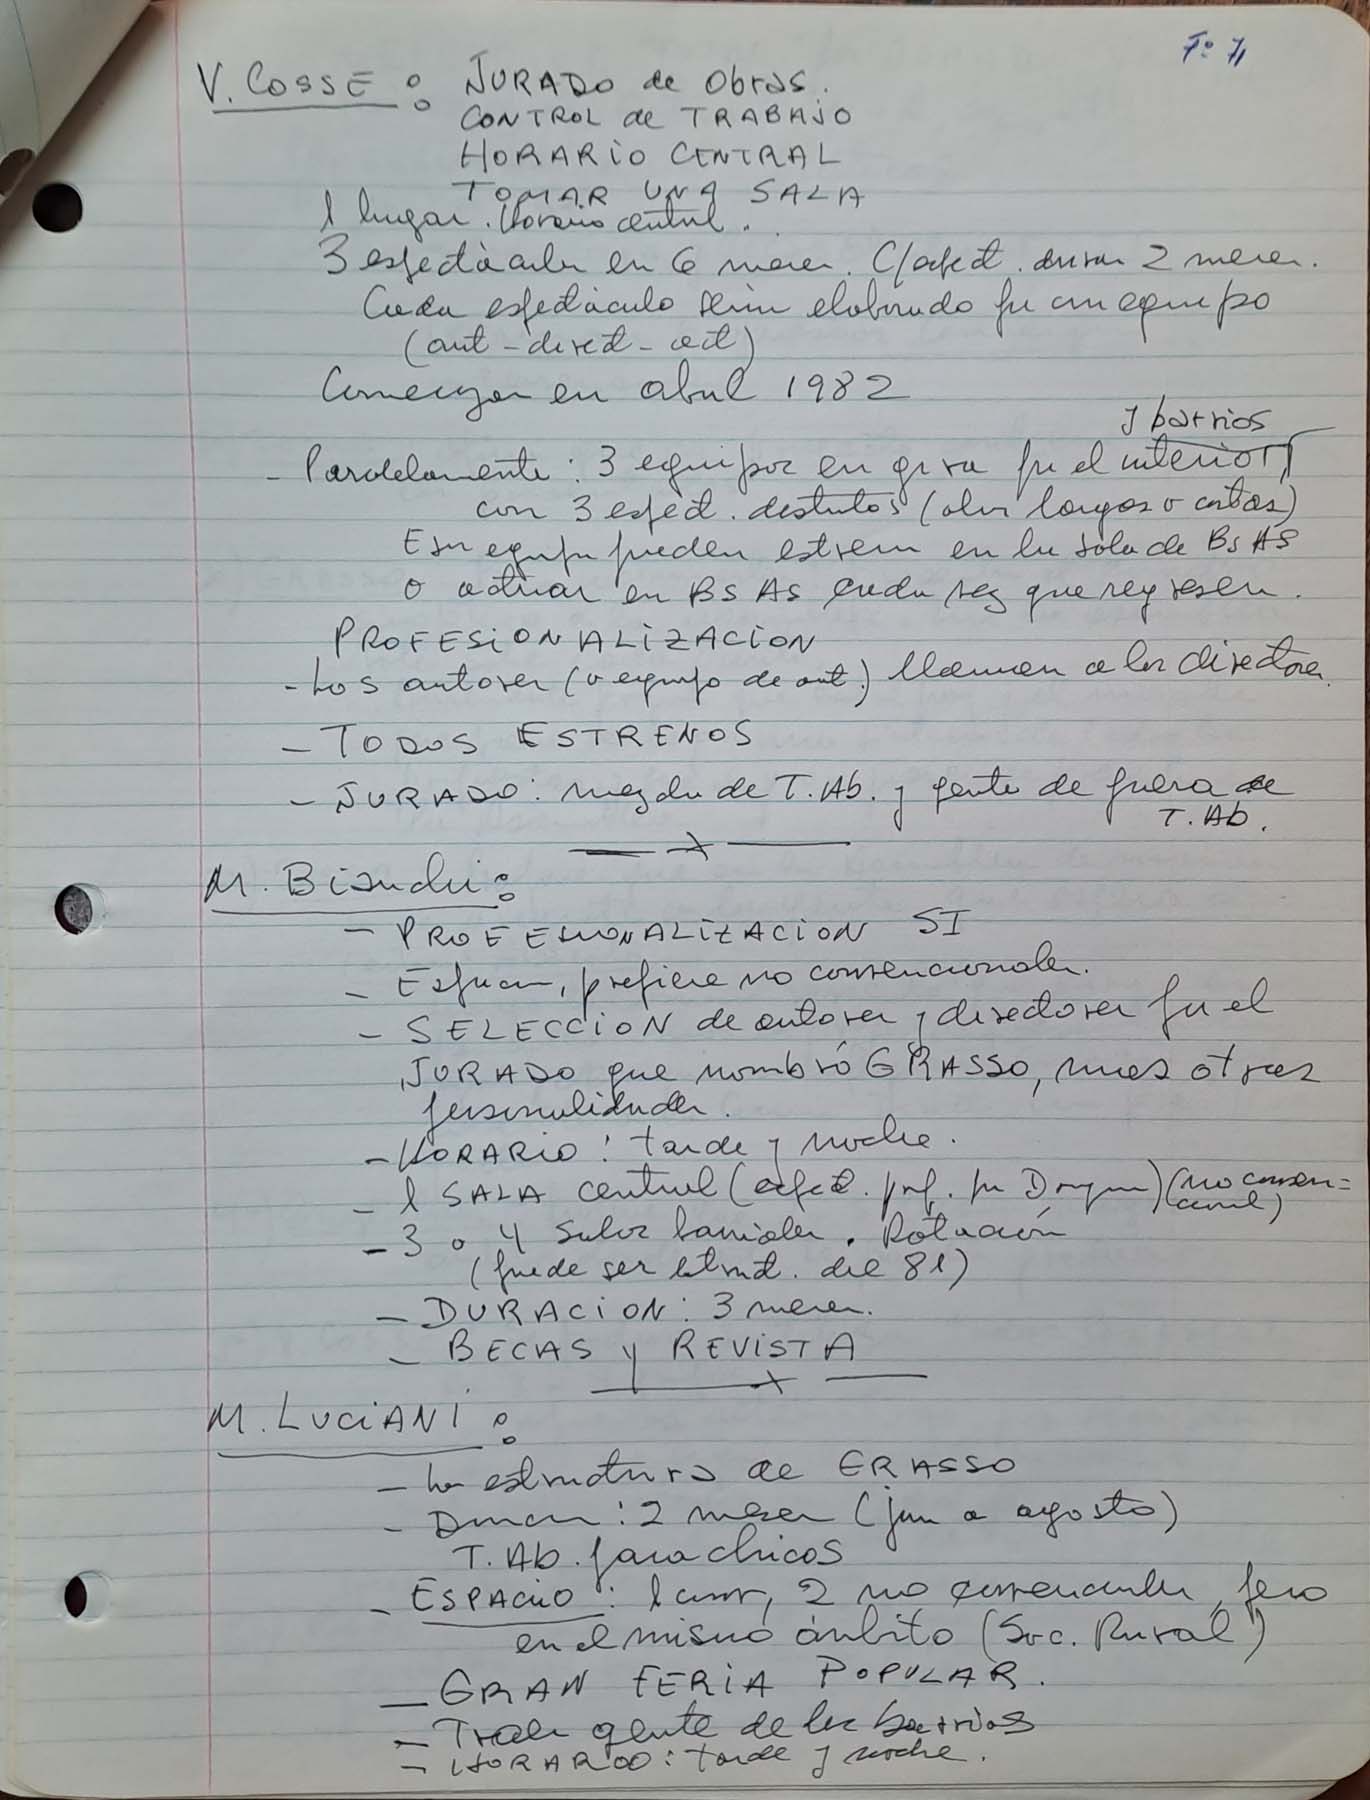 Fº 71
V. COSSE: JURADO de Obras.
CONTROL de TRABAJO
HORARIO CENTRAL
TOMAR UNA SALA
1 lugar. Horario central.
3 espectáculos en 6 meses. C/espect. duran 2 meses.
Cada espectáculo sería elaborado por un equipo
(aut - direct - act)
Comenzar en abril 1982
y barrios
- Paralelamente: 3 equipos en gira por el interior
con 3 espect. distintos (obras largas o cortas)
Esos equipos pueden estrenar en la sala de Bs As
o actuar en Bs As cada vez que regresen.
PROFESIONALIZACION
- Los autores (o equipo de aut.) llaman a los directores.
- TODOS ESTRENOS
- JURADO: mezcla de T. Ab. y gente de fuera de
T. Ab.
M. Bianchi:
- PROFESIONALIZACION SI
- Espacio, prefiere no convencionales.
- SELECCION de autores y directores por el
JURADO que nombró GRASSO, mas otras
personalidades.
- HORARIO: tarde y noche.
- 1 SALA central (espect. prof. por Dragun) (no conven=
cional)
- 3 o 4 salas barriales. Rotación
(puede ser del 81)
- DURACION: 3 meses.
- BECAS y REVISTA
M. LUCIANI:
- La estructura de GRASSO
- Duran: 2 meses (jun a agosto)
T. Ab. para chicos
- ESPACIO: 1 conv, 2 no convencionales, pero
en el mismo ámbito (Soc. Rural)
- GRAN FERIA POPULAR.
- Traer gente de los barrios
- HORARIO: tarde y noche.